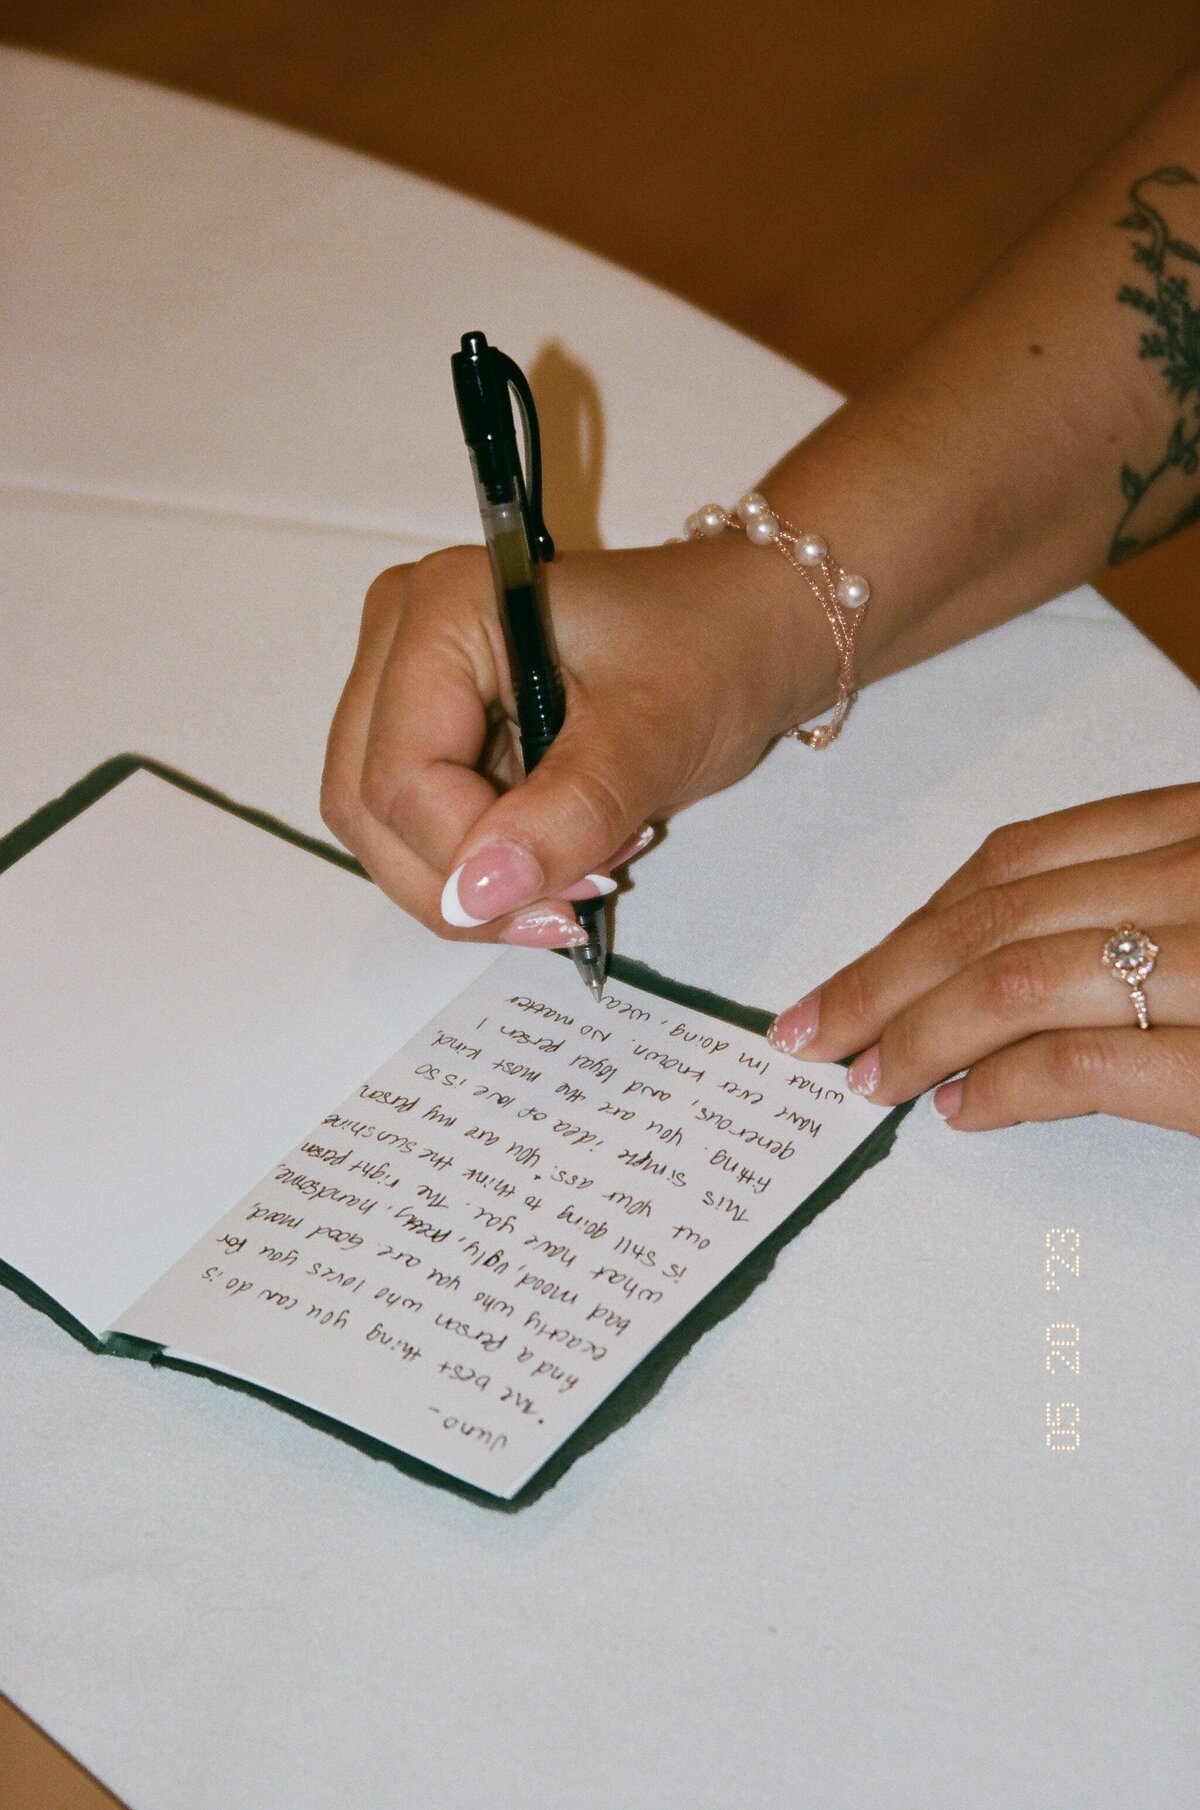 Juno -
"The best thing you can do is
find a person who loves you for
exactly who you are. Good mood,
bad mood, ugly, pretty, handsome,
what have you. The right person
is still going to think the sunshine
out your ass." You are my person.
This simple idea of love is so
fitting. You are the most kind,
generous, and loyal person I
have ever known. No matter
what Im doing, wea
05 20 '23